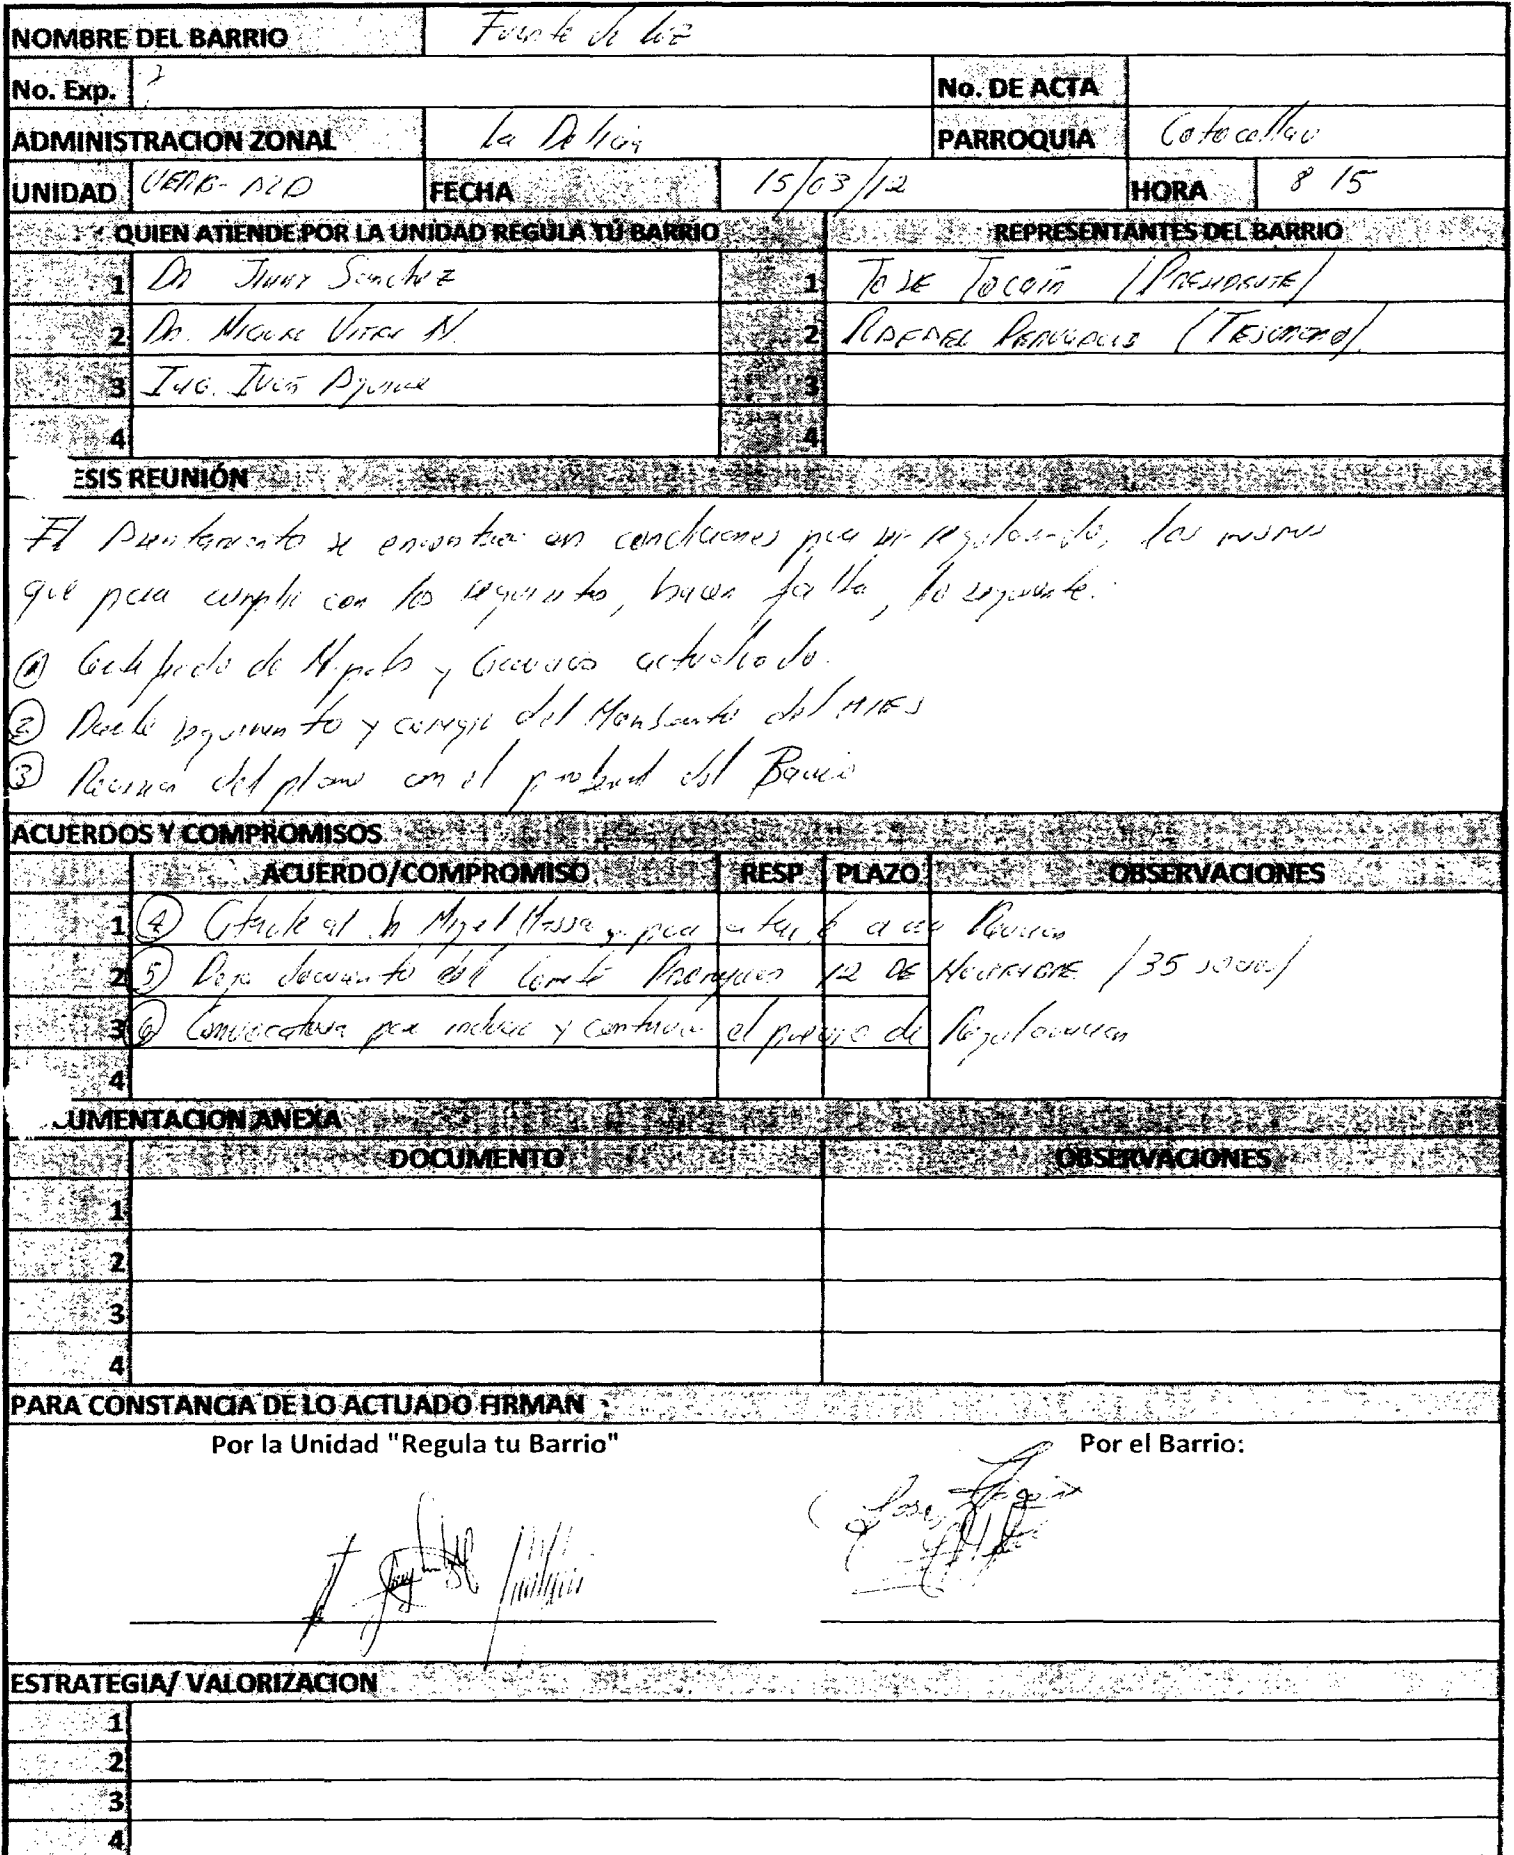 NOMBRE DEL BARRIO Fuente de luz
No. Exp. No. DE ACTA
ADMINISTRACION ZONAL La Delicia PARROQUIA Cotocollao
UNIDAD UERB-AZD FECHA 15/03/12 HORA 8 15
QUIEN ATIENDE POR LA UNIDAD REGULA TÚ BARRIO REPRESENTANTES DEL BARRIO
1 Dr Sanchez 1 JOSE (PRESIDENTE)
2 Dr. N. 2 RAFAEL (TESORERO)
3 Ing. Iván 3
4 4
ESIS REUNIÓN
El Asentamiento se encontrar en condiciones para ser regularizado, los mismos
que para cumplir con los requisitos, hacen falta, lo siguiente:
① Certificado de Hipotecas y Gravamenes actualizado.
② Darle seguimiento y corregir del del MIES
③ Revision del plano con el del Barrio
ACUERDOS Y COMPROMISOS
ACUERDO/COMPROMISO RESP PLAZO OBSERVACIONES
1 ④ al Sr Miguel para a una Reunion
2 ⑤ Deja documento del Comité 12 DE /35 socios/
3 ⑥ Convocatoria para y continuar el proceso de Regularizacion
4
UMENTACION ANEXA
DOCUMENTO OBSERVACIONES
1
2
3
4
PARA CONSTANCIA DE LO ACTUADO FIRMAN
Por la Unidad "Regula tu Barrio" Por el Barrio:
ESTRATEGIA/ VALORIZACION
1
2
3
4